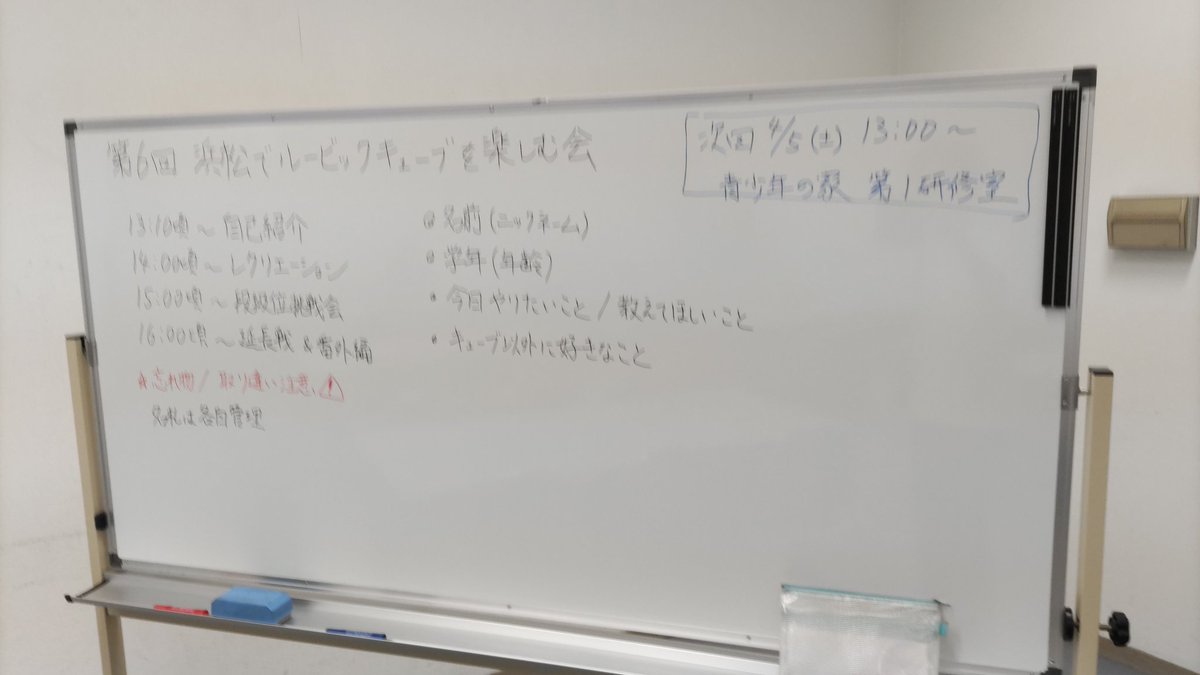 第6回 浜松でルービックキューブを楽しむ会
次回 4/5(土) 13:00～
青少年の家 第1研修室
13:10頃～自己紹介
14:00頃～レクリエーション
15:00頃～段級位挑戦会
16:00頃～延長戦&番外編
★忘れ物/取り違い注意⚠
名札は各自管理
• 名前(ニックネーム)
• 学年(年齢)
• 今日やりたいこと/教えてほしいこと
• キューブ以外に好きなこと